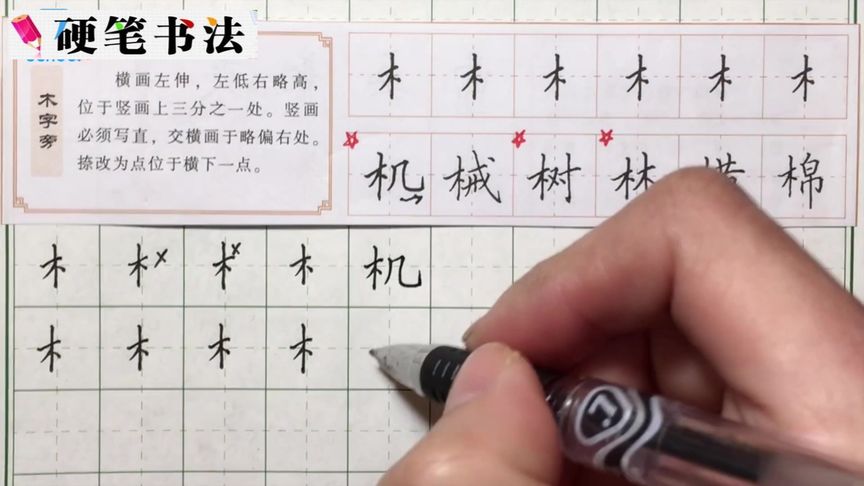 硬笔书法
木字旁
横画左伸，左低右略高，
位于竖画上三分之一处。竖画
必须写直，交横画于略偏右处。
捺改为点位于横下一点。
木 木 木 木 木 木
机 械 树 林 棉
木 木 木 木 机
木 木 木 木